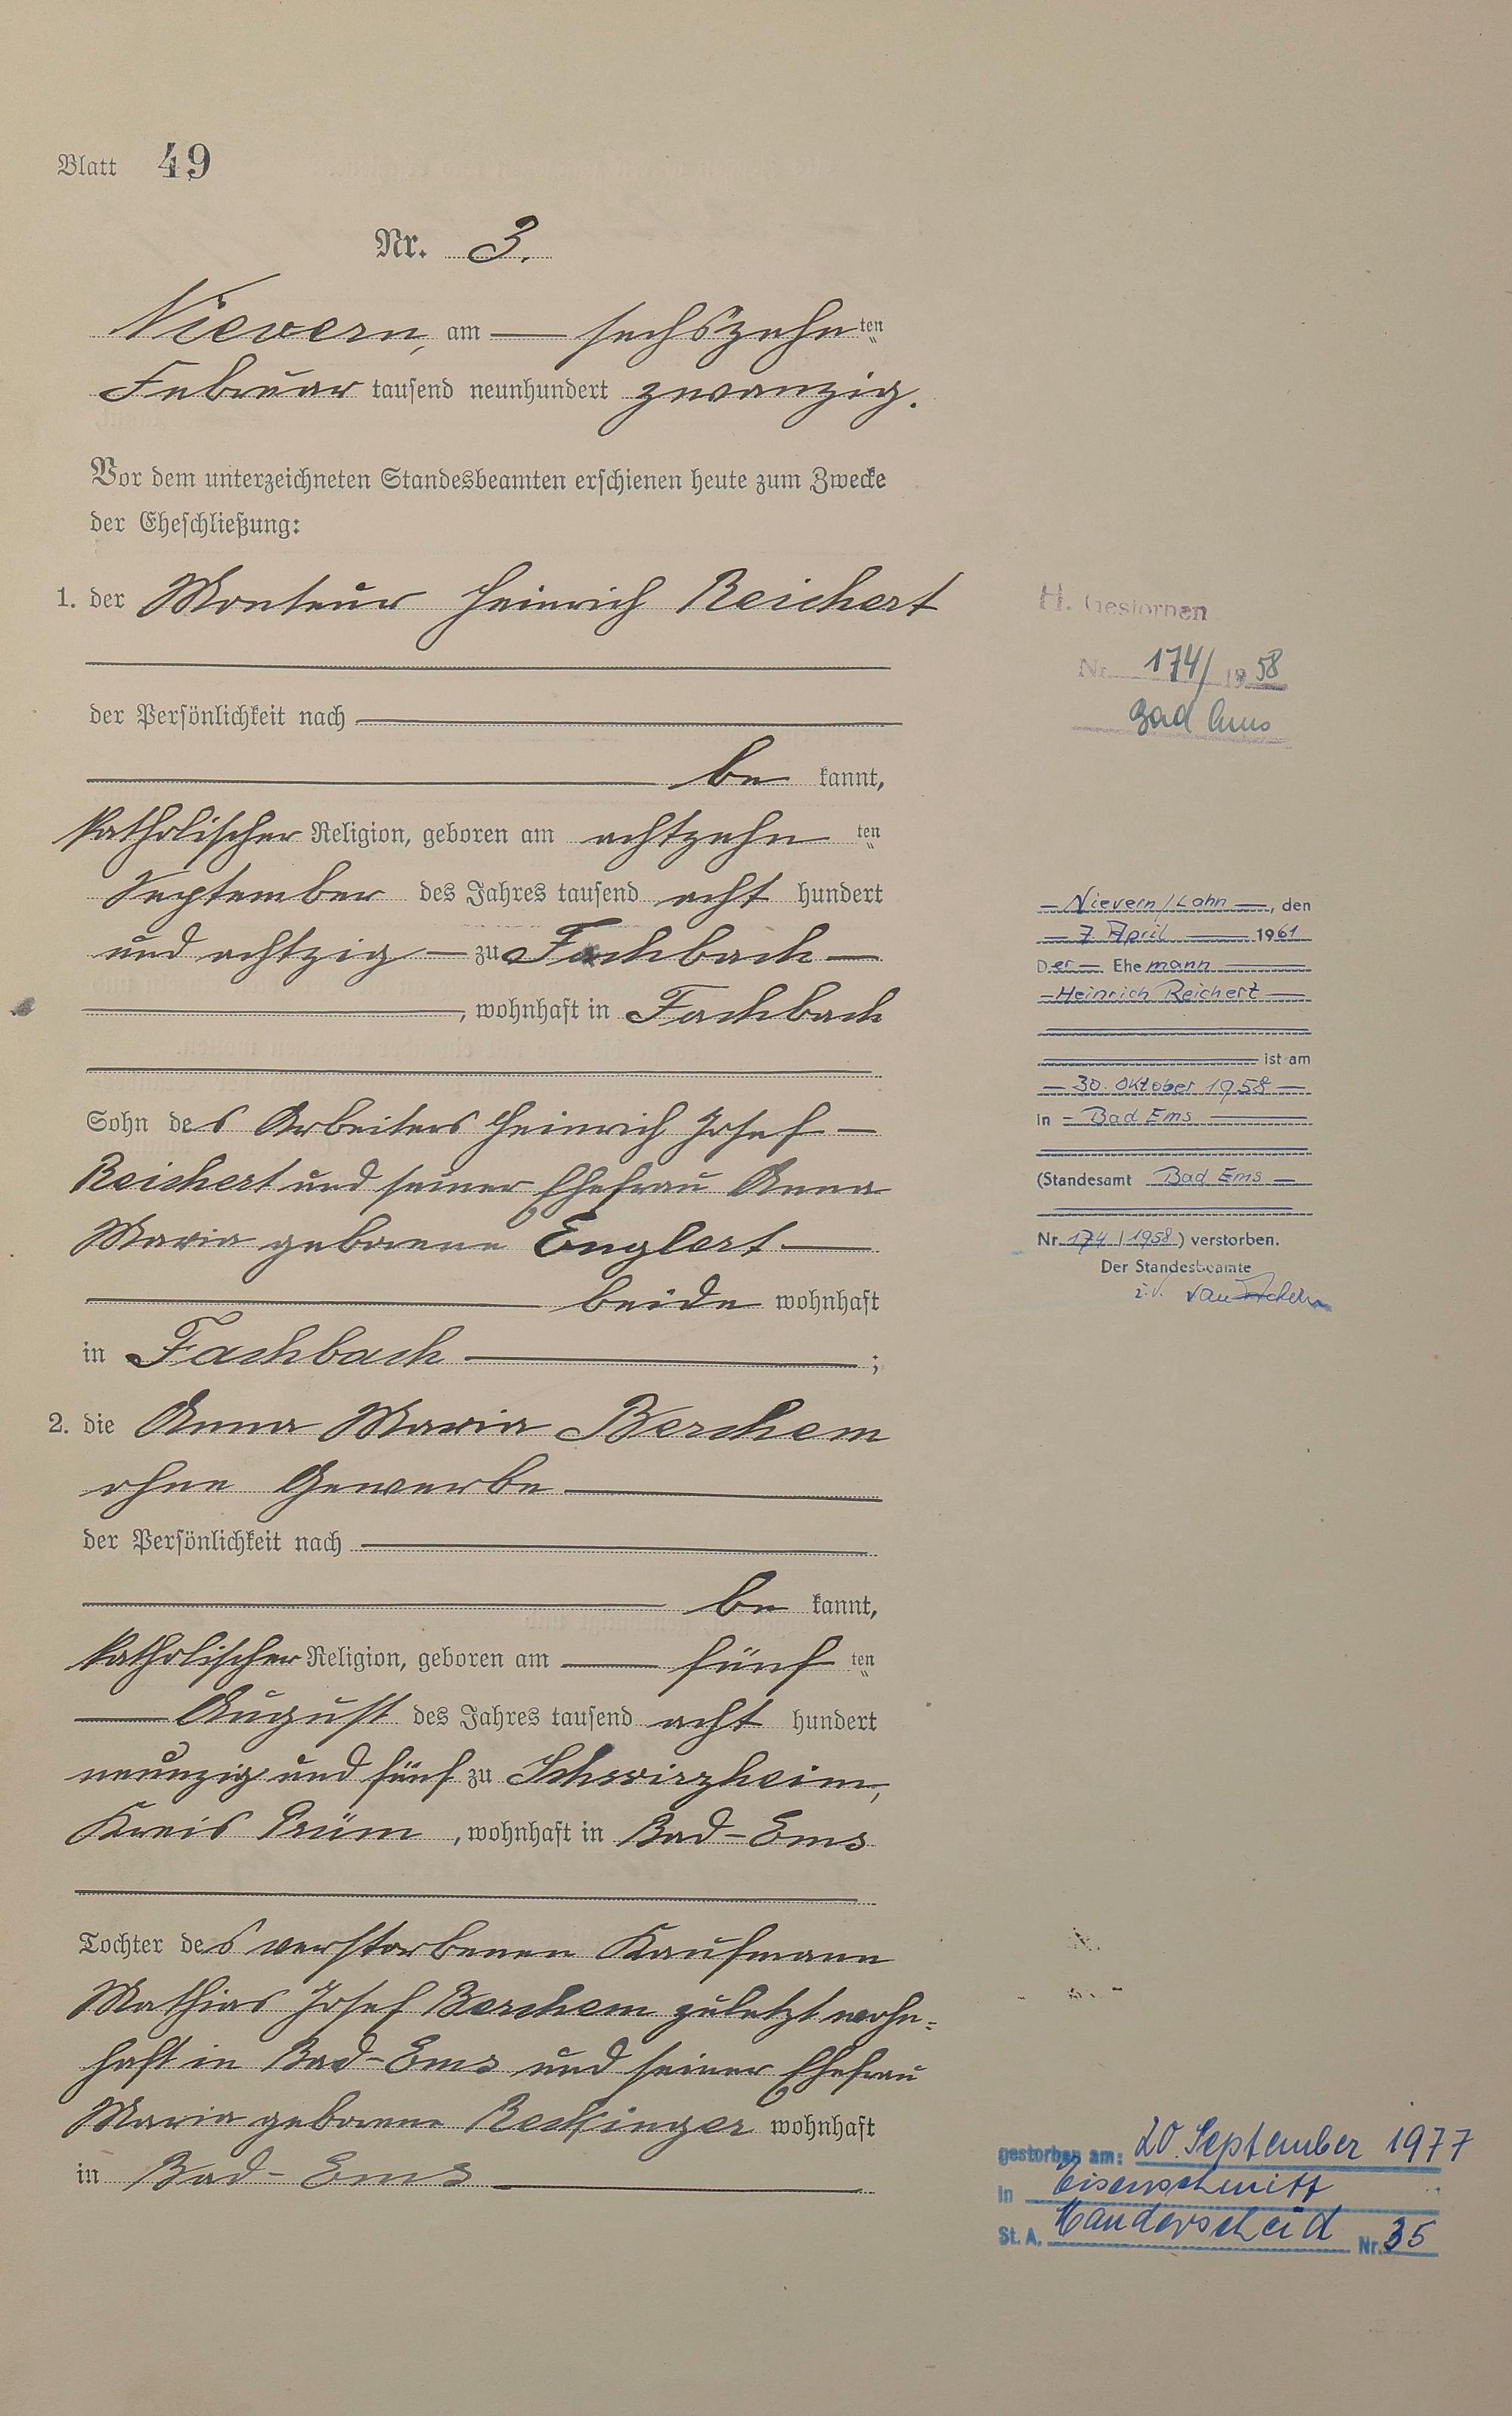 Blatt 49
Nr. 3.
Nievern, am — sechszehn ten
Februar tausend neunhundert zwanzig.
Vor dem unterzeichneten Standesbeamten erschienen heute zum Zwecke
der Eheschließung:
1. der Monteur Heinrich Reichert
der Persönlichkeit nach
be kannt,
katholischer Religion, geboren am achtzehn ten
September des Jahres tausend acht hundert
und achtzig — zu Fachbach —
, wohnhaft in Fachbach
Sohn des Arbeiters Heinrich Josef —
Reichert und seiner Ehefrau Anna
Maria geborene Englert —
beide wohnhaft
in Fachbach — ;
2. die Anna Maria Berchem
ohne Gewerbe —
der Persönlichkeit nach
be kannt,
katholischer Religion, geboren am — fünf ten
— August des Jahres tausend acht hundert
neunzig und fünf zu Schwirzheim,
Kreis Prüm, wohnhaft in Bad-Ems
Tochter des verstorbenen Kaufmann
Mathias Josef Berchem zuletzt wohn=
haft in Bad-Ems und seiner Ehefrau
Maria geborene Reckinger wohnhaft
in Bad-Ems —
H. Gestorben
Nr. 174/1958
Bad Ems
— Nievern/Lahn —, den
— 7 April — 1961
Der — Ehemann —
— Heinrich Reichert —
ist am
— 30. Oktober 1958 —
in — Bad Ems —
(Standesamt Bad Ems —
Nr. 174 / 1958) verstorben.
Der Standesbeamte
i.V.
gestorben am: 20. September 1977
in Eisenschmitt
St. A. Manderscheid Nr. 35